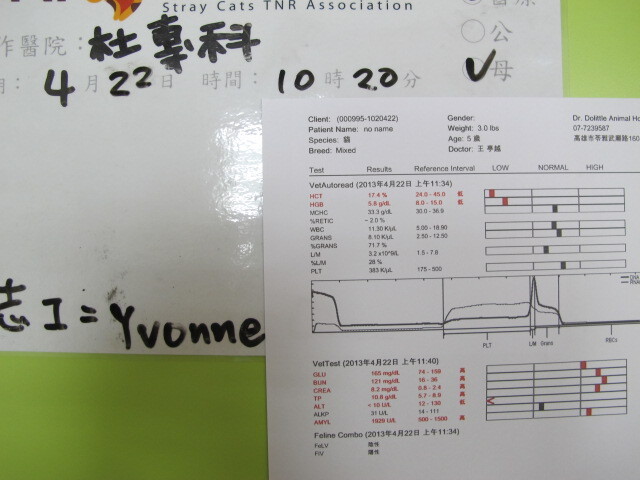 Stray Cats TNR Association
作醫院：杜專科
4月22日 時間：10時20分
公
母
志工=Yvonne
Client: (000995-1020422)
Patient Name: no name
Species: 貓
Breed: Mixed
Gender:
Weight: 3.0 lbs
Age: 5 歲
Doctor: 王 學越
Dr. Dolittle Animal Ho
07-7239587
高雄市苓雅武廟路160
Test Results Reference Interval LOW NORMAL HIGH
VetAutoread (2013年4月22日 上午11:34)
HCT 17.4 % 24.0 - 45.0 低
HGB 5.8 g/dL 8.0 - 15.0 低
MCHC 33.3 g/dL 30.0 - 36.9
%RETIC ~ 2.0 %
WBC 11.30 K/µL 5.00 - 18.90
GRANS 8.10 K/µL 2.50 - 12.50
%GRANS 71.7 %
L/M 3.2 x10^9/L 1.5 - 7.8
%L/M 28 %
PLT 383 K/µL 175 - 500
DNA
RNA
PLT L/M Grans RBCs
VetTest (2013年4月22日 上午11:40)
GLU 165 mg/dL 74 - 159 高
BUN 121 mg/dL 16 - 36 高
CREA 6.2 mg/dL 0.8 - 2.4 高
TP 10.8 g/dL 5.7 - 8.9 高
ALT < 10 U/L 12 - 130 低
ALKP 31 U/L 14 - 111
AMYL 1628 U/L 500 - 1500 高
Feline Combo (2013年4月22日 上午11:34)
FeLV 陰性
FIV 陽性